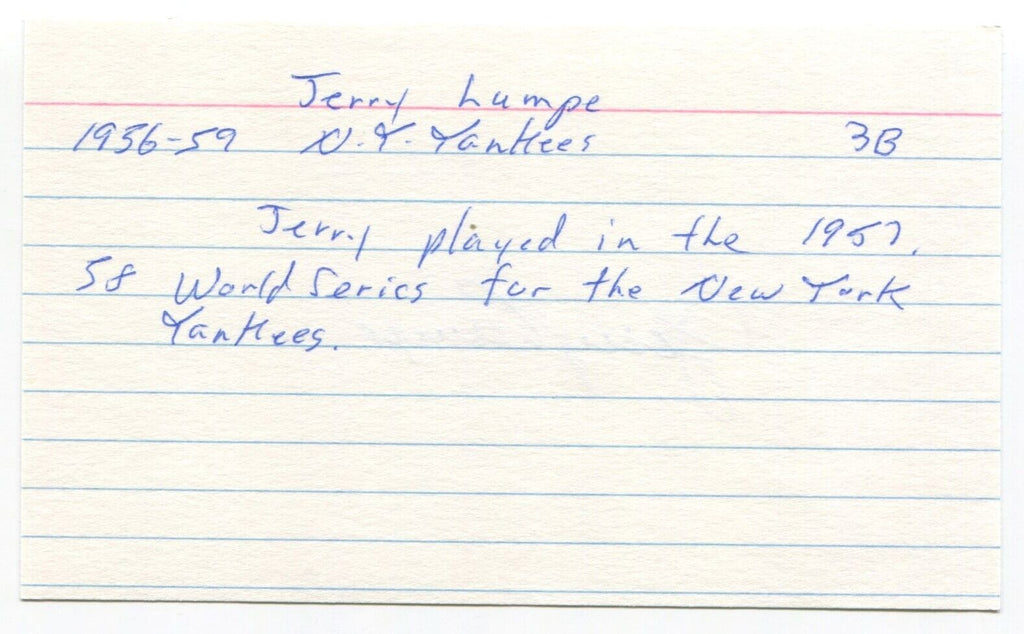 Jerry Lumpe
1956-59 N.Y. Yankees 3B
Jerry played in the 1957,
58 World Series for the New York
Yankees.